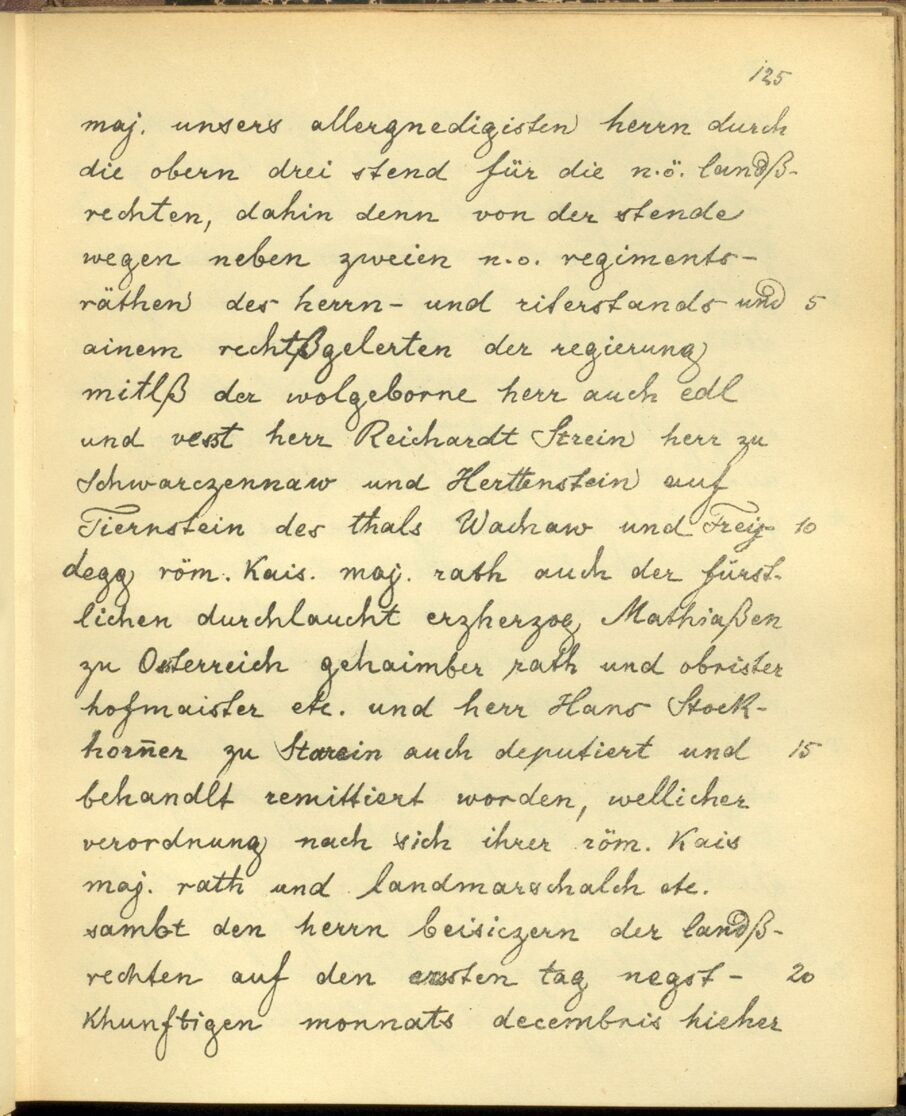 125
maj. unsers allergnedigisten herrn durch
die obern drei stend für die n.ö. landß-
rechten, dahin denn von der stende
wegen neben zweien n.o. regiments-
räthen des herrn- und riterstands und 5
ainem rechtßgelerten der regierung
mitlß der wolgeborne herr auch edl
und vesst herr Reichardt Strein herr zu
Schwarczennaw und Herttenstein auf
Tiernstein des thals Wachaw und Freij- 10
degg röm. Kais. maj. rath auch der fürst-
lichen durchlaucht erzherzog Mathiaßen
zu Osterreich gehaimber rath und obrister
hofmaister etc. und herr Hans Stock-
horn̄er zu Starein auch deputiert und 15
behandlt remittiert worden, wellicher
verordnung nach sich ihrer röm. Kais
maj. rath und landmarschalch etc.
sambt den herrn beisiczern der landß-
rechten auf den ersten tag negst- 20
khunftigen monnats decembris hieher